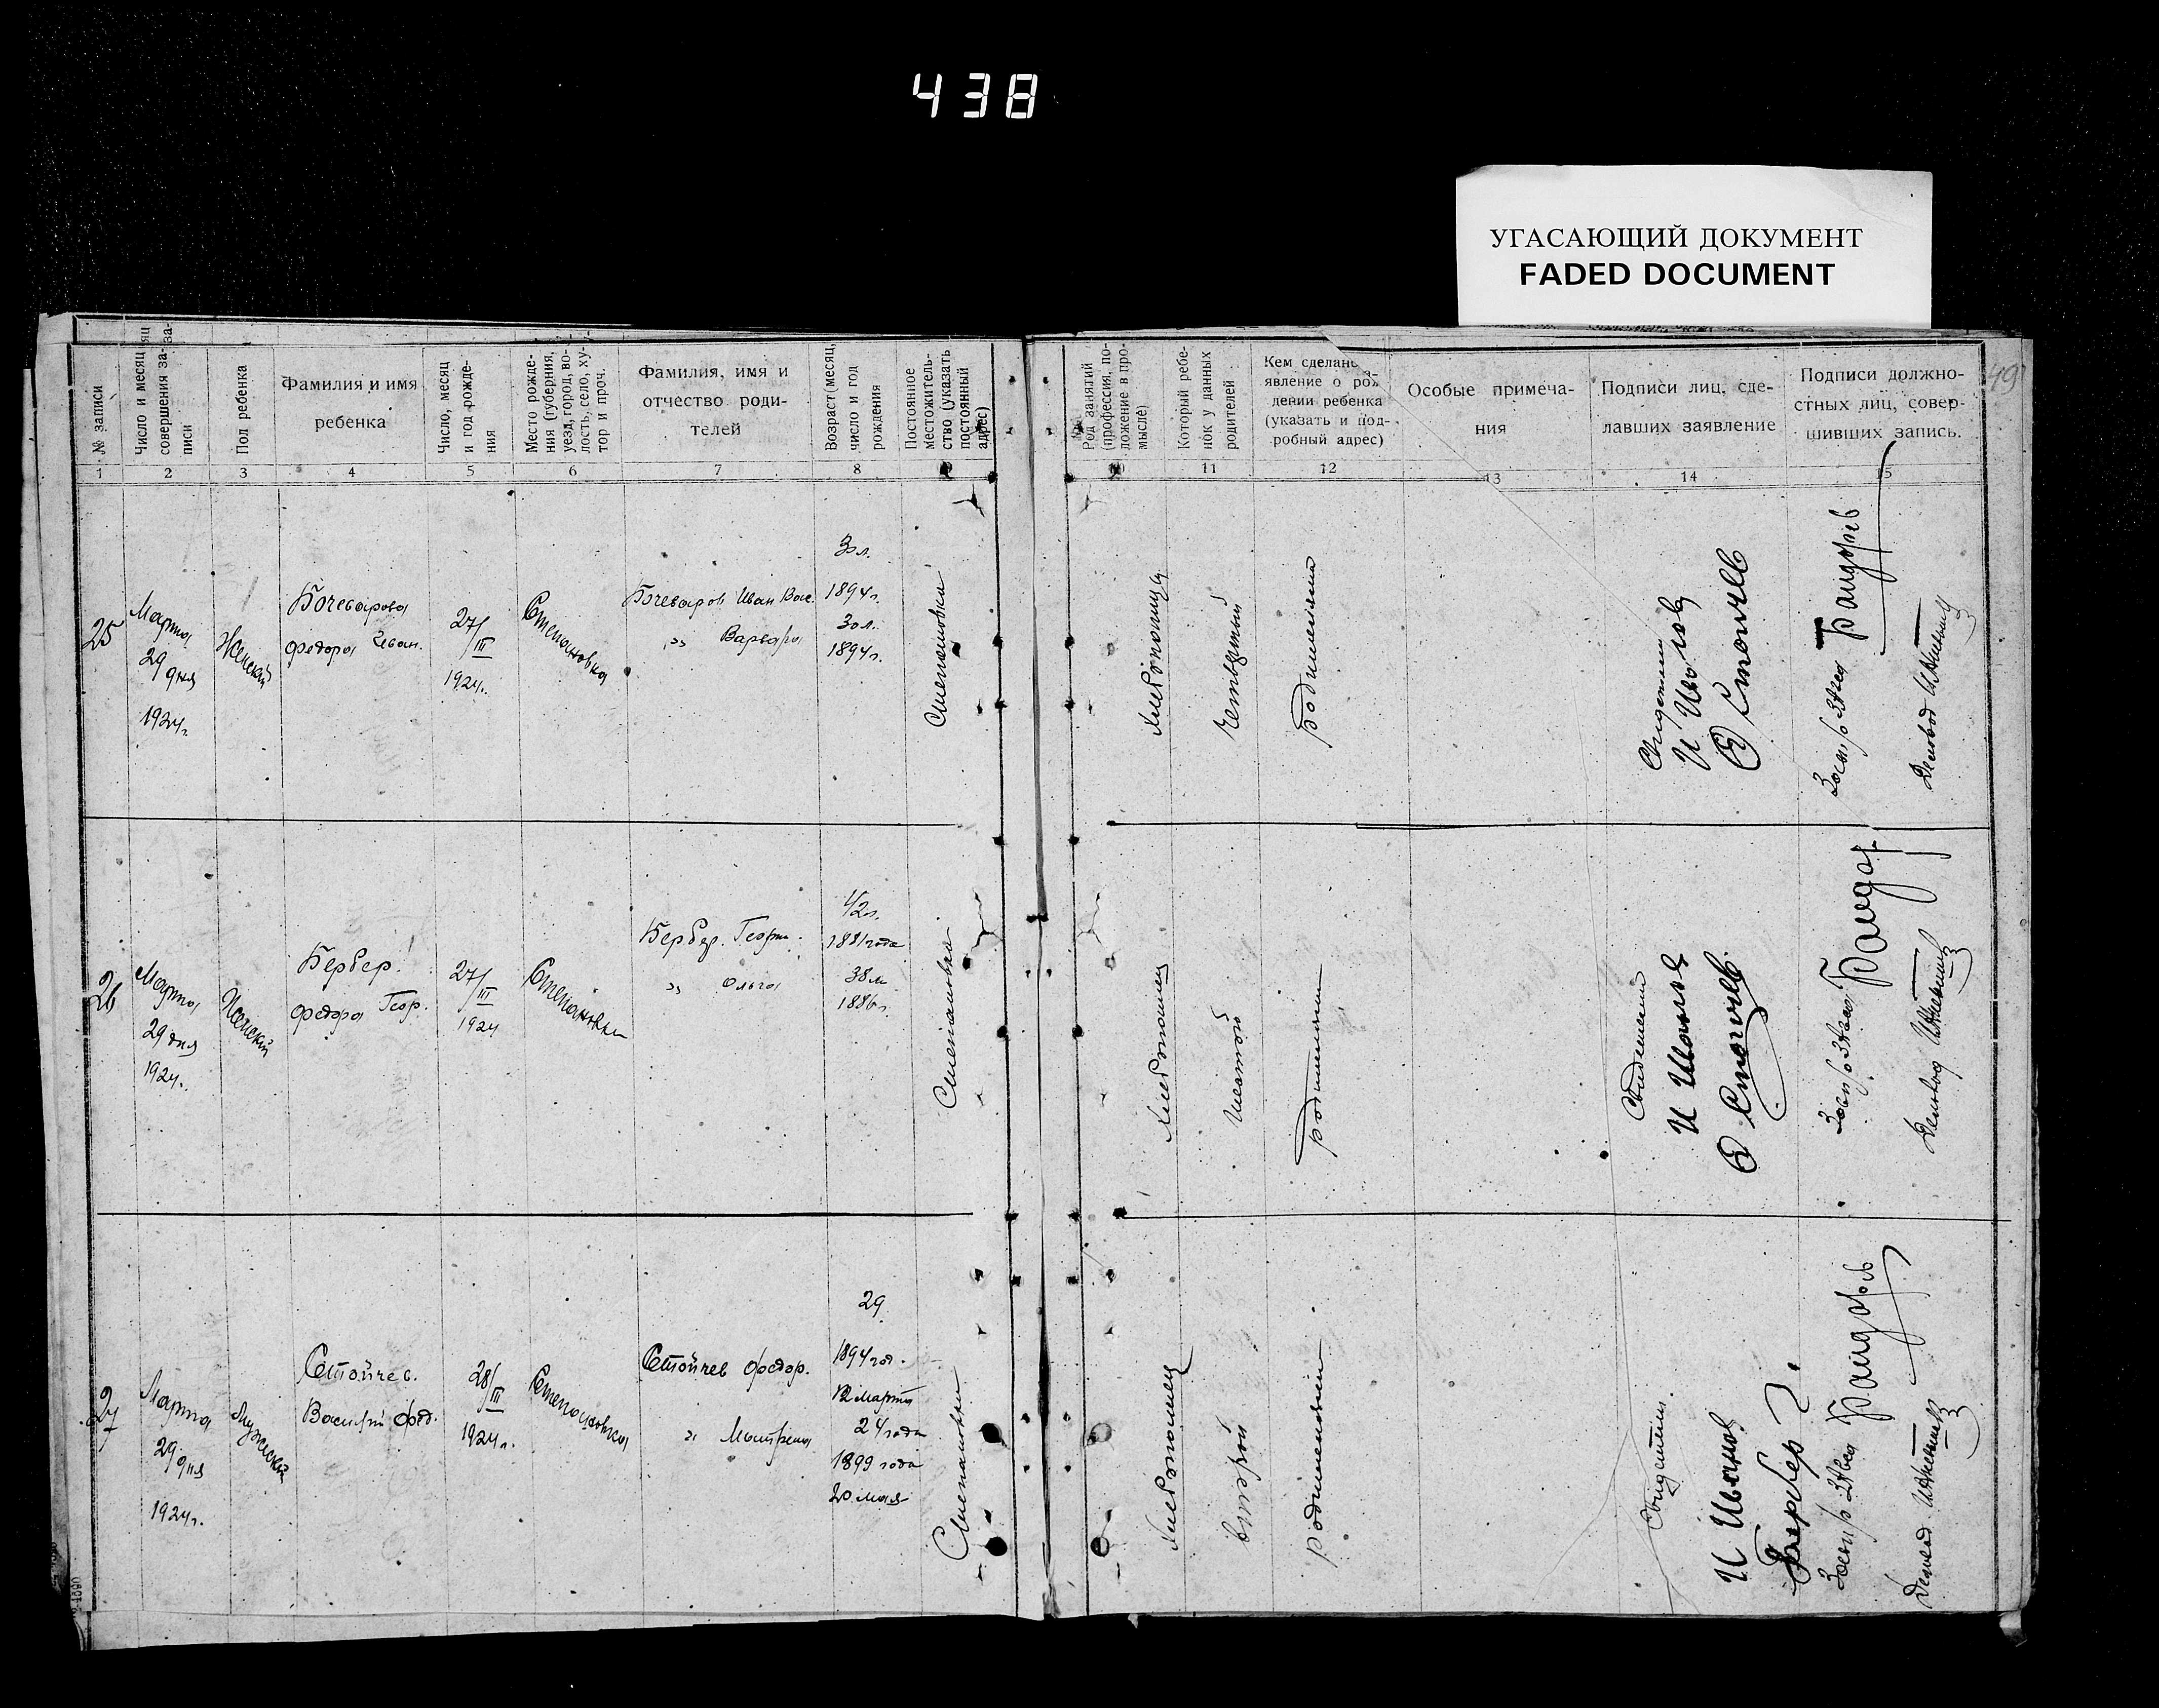 438
УГАСАЮЩИЙ ДОКУМЕНТ
FADED DOCUMENT
49
№ записи
Число и месяц
совершения за-
писи
Пол ребенка
Фамилия и имя
ребенка
Число, месяц
и год рожде-
ния
Место рожде-
ния (губерния,
уезд, город, во-
лость, село, ху-
тор и проч.
Фамилия, имя и
отчество роди-
телей
Возраст (месяц,
число и год
рождения
Постоянное
местожитель-
ство (указать
постоянный
адрес)
Род занятий
(профессия, по-
ложение в про-
мысле)
Который ребе-
нок у данных
родителей
Кем сделано
явление о рож
дении ребенка
(указать и под-
робный адрес)
Особые примеча-
ния
Подписи лиц, сде-
лавших заявление
Подписи должно-
стных лиц, совер-
шивших запись.
1
2
3
4
5
6
7
8
11
12
13
14
15
25
Марта
29 дня
1924г.
Женский
Бочеварова
Федора Иван.
27/III
1924г.
Степановка
Бочеваров Иван Вас.
„ Варвара
30 л.
1894г.
30 л.
1894г.
Степановка
Хлебопашец
Четвертый
родителями
Свидетели
И Иванов
Ф Стойчев
Делопод
26
Марта
29 дня
1924г.
Женский
Бербер.
Федора Геор.
27/III
1924
Степановка
Бербер. Георги.
„ Ольга
42г.
1881 года
38 л
1886г.
Степановка
Хлебопашец
Шестой
родителями
Свидетели
И Иванов
Ф Стойчев.
27
Марта
29 дня
1924г.
Мужский
Стойчев.
Василий Фед.
28/III
1924г.
Степановка
Стойчев Федор.
„ Матрена
29
1894 год.
12 марта
24 года
1899 года
20 мая
Степановки
Хлебопашец
второй
родителями
Свидетели
И Иванов
Бербер Г.